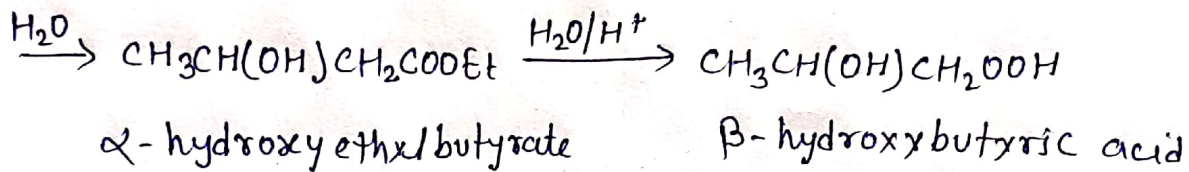 H₂O → CH₃CH(OH)CH₂COOEt H₂O/H⁺ → CH₃CH(OH)CH₂OOH
α-hydroxy ethyl butyrate β-hydroxybutyric acid